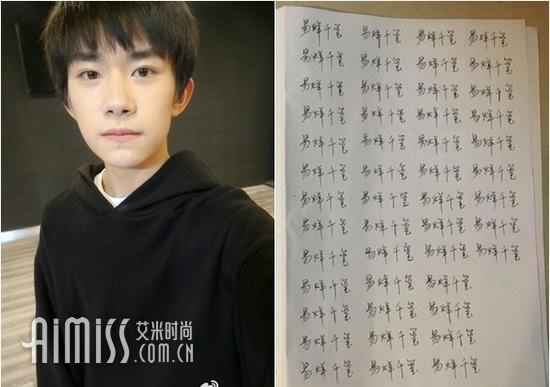 易烊千玺 易烊千玺 易烊千玺 易烊千玺
易烊千玺 易烊千玺 易烊千玺 易烊千玺
易烊千玺 易烊千玺 易烊千玺 易烊千玺
易烊千玺 易烊千玺 易烊千玺 易烊千玺
易烊千玺 易烊千玺 易烊千玺 易烊千玺
易烊千玺 易烊千玺 易烊千玺 易烊千玺
易烊千玺 易烊千玺 易烊千玺 易烊千玺
易烊千玺 易烊千玺 易烊千玺 易烊千玺
易烊千玺 易烊千玺 易烊千玺 易烊千玺
易烊千玺 易烊千玺 易烊千玺
易烊千玺 易烊千玺 易烊千玺
易烊千玺 易烊千玺 易烊千玺
易烊千玺 易烊千玺 易烊千玺
AiMiss 艾米时尚
.COM.CN